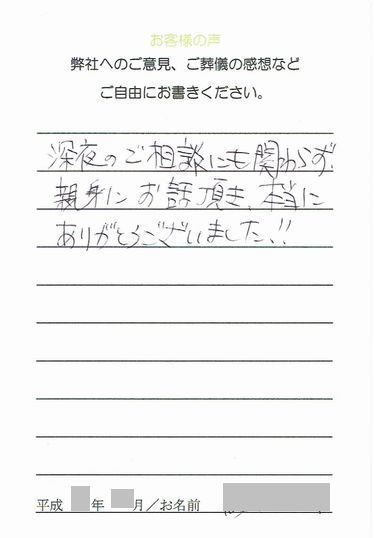 お客様の声
弊社へのご意見、ご葬儀の感想など
ご自由にお書きください。
深夜のご相談にも関わらず
親身にお話頂き、本当に
ありがとうございました!!
平成 年 月／お名前